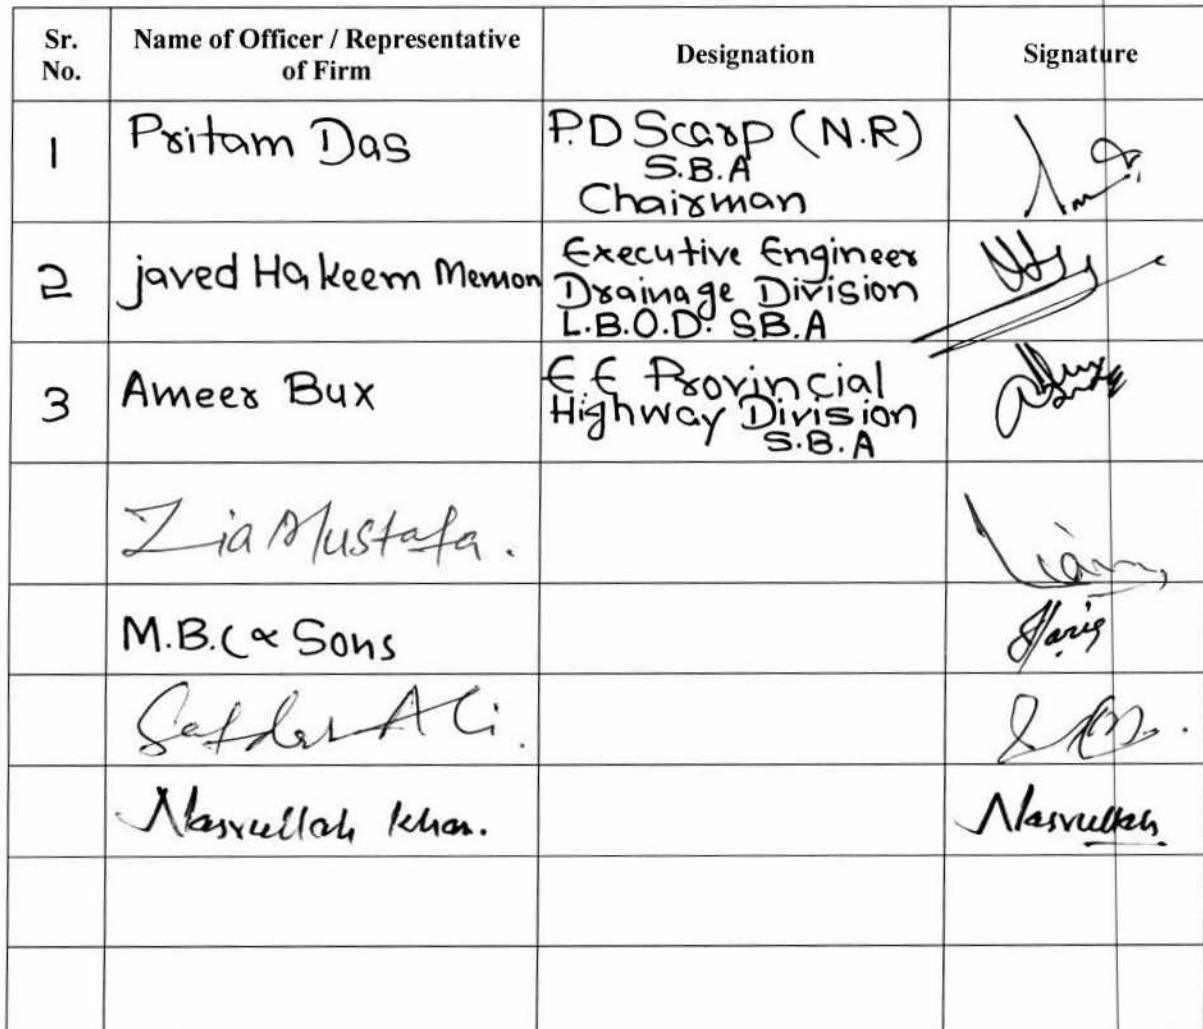 Sr. No.
Name of Officer / Representative of Firm
Designation
Signature
1
Pritam Das
P.D Scarp (N.R)
S.B.A
Chairman
2
javed Hakeem Memon
Executive Engineer
Drainage Division
L.B.O.D. S.B.A
3
Ameer Bux
E E Provincial
Highway Division
S.B.A
Zia Mustafa.
M.B.C & Sons
Haris
Safder Ali.
Nasrullah Khan.
Nasrullah